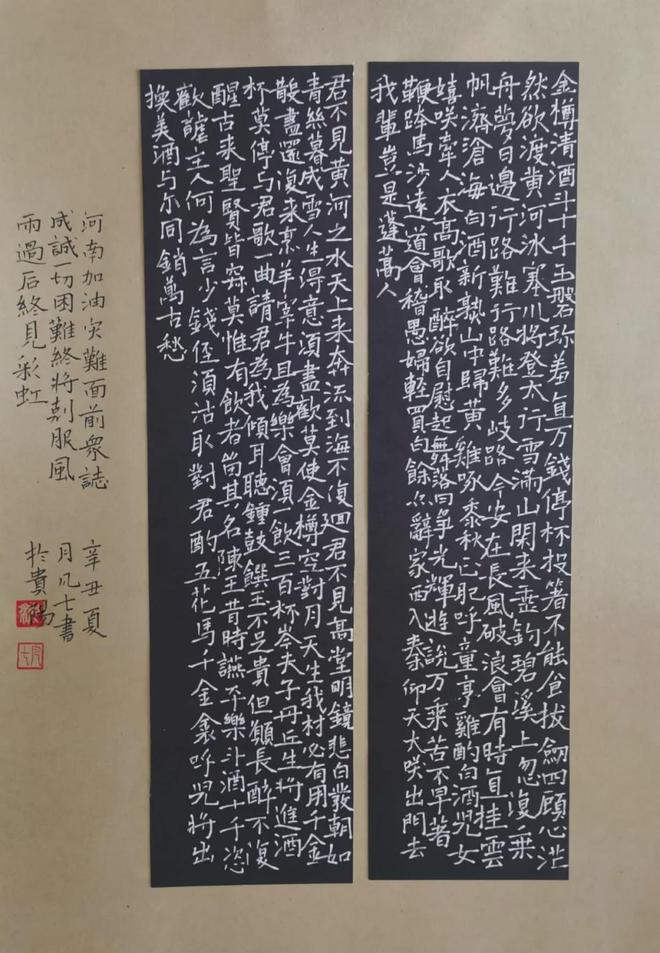 金樽清酒斗十千玉盤珍羞直万錢停杯投箸不能食拔劒四顧心茫
然欲渡黄河冰塞川将登太行雪滿山閑来垂釣碧溪上忽復乗
舟夢日邊行路難行路難多岐路今安在長風破浪會有時直挂雲
帆濟滄海白酒新熟山中歸黄雞啄黍秋正肥呼童亨雞酌白酒児女
嬉咲牽人衣高歌取醉欲自慰起舞落日争光輝遊説万乗苦不早著
鞭跨馬涉遠道會稽愚婦輕買臣余亦辭家西入秦仰天大咲出門去
我輩豈是蓬蒿人
君不見黄河之水天上来奔流到海不復迴君不見高堂明鏡悲白髮朝如
青絲暮成雪人生得意須盡歡莫使金樽空對月天生我材必有用千金
散盡還復来烹羊宰牛且為樂會須一飲三百杯岑夫子丹丘生将進酒
杯莫停与君歌一曲請君為我傾耳聽鍾鼓饌玉不足貴但願長醉不復
醒古来聖賢皆寂莫惟有飲者留其名陳王昔時讌平樂斗酒十千恣
歡謔主人何為言少錢径須沽取對君酌五花馬千金裘呼児将出
換美酒与尔同銷萬古愁
河南加油灾難面前衆誌
成誠一切困難終将剋服風
雨過后終見彩虹
辛丑夏
月凡七書
於貴陽